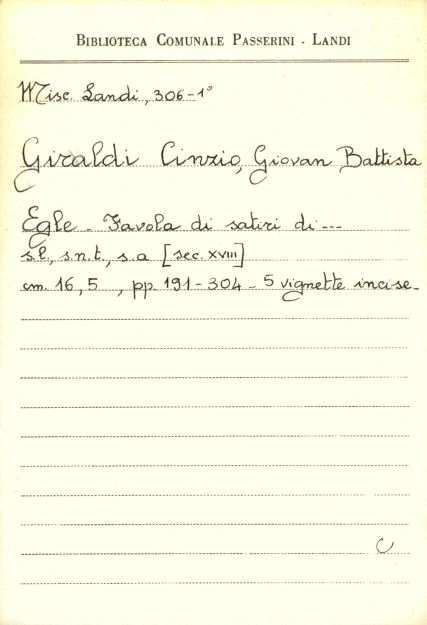 BIBLIOTECA COMUNALE PASSERINI - LANDI
Misc. Landi, 306-1°
Giraldi Cinzio, Giovan Battista
Egle - Favola di satiri di ---
s.l., s.n.t., s.a [sec. XVIII]
cm. 16,5 , pp. 191-304 - 5 vignette incise -
C